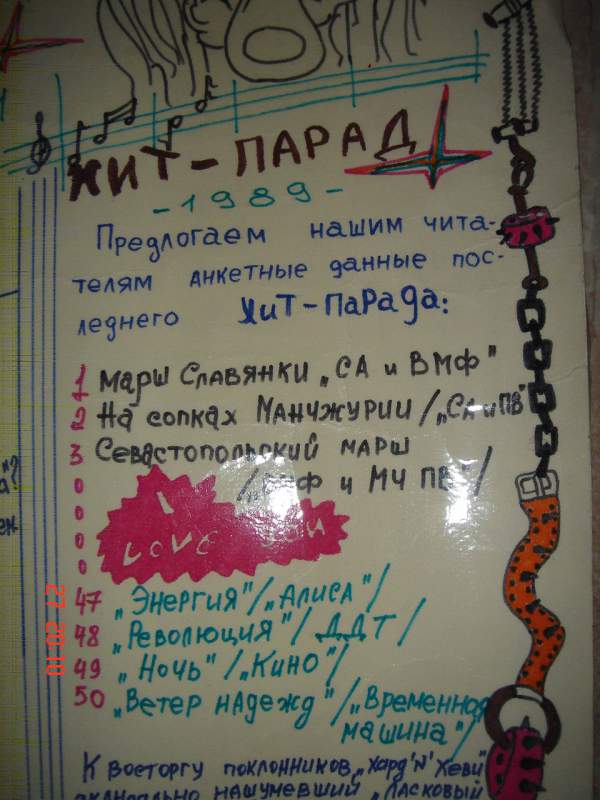 ХИТ-ПАРАД
-1989-
Предлогаем нашим чита-
телям анкетные данные пос-
леднего ХиТ-ПаРада:
1 Марш Славянки „СА и ВМФ"
2 На сопках Манчжурии /„СА и ПВ"
3 Севастопольский марш
0 и МЧ ПВ"/
0
0 I
0 LOVE YOU
47 „Энергия"/„Алиса"/
48 „Революция"/ДДТ/
49 „Ночь"/„Кино"/
50 „Ветер надежд"/„Временная
машина"/
К восторгу поклонников „Хард'N'Хеви"
скандально нашумевший „Ласковый